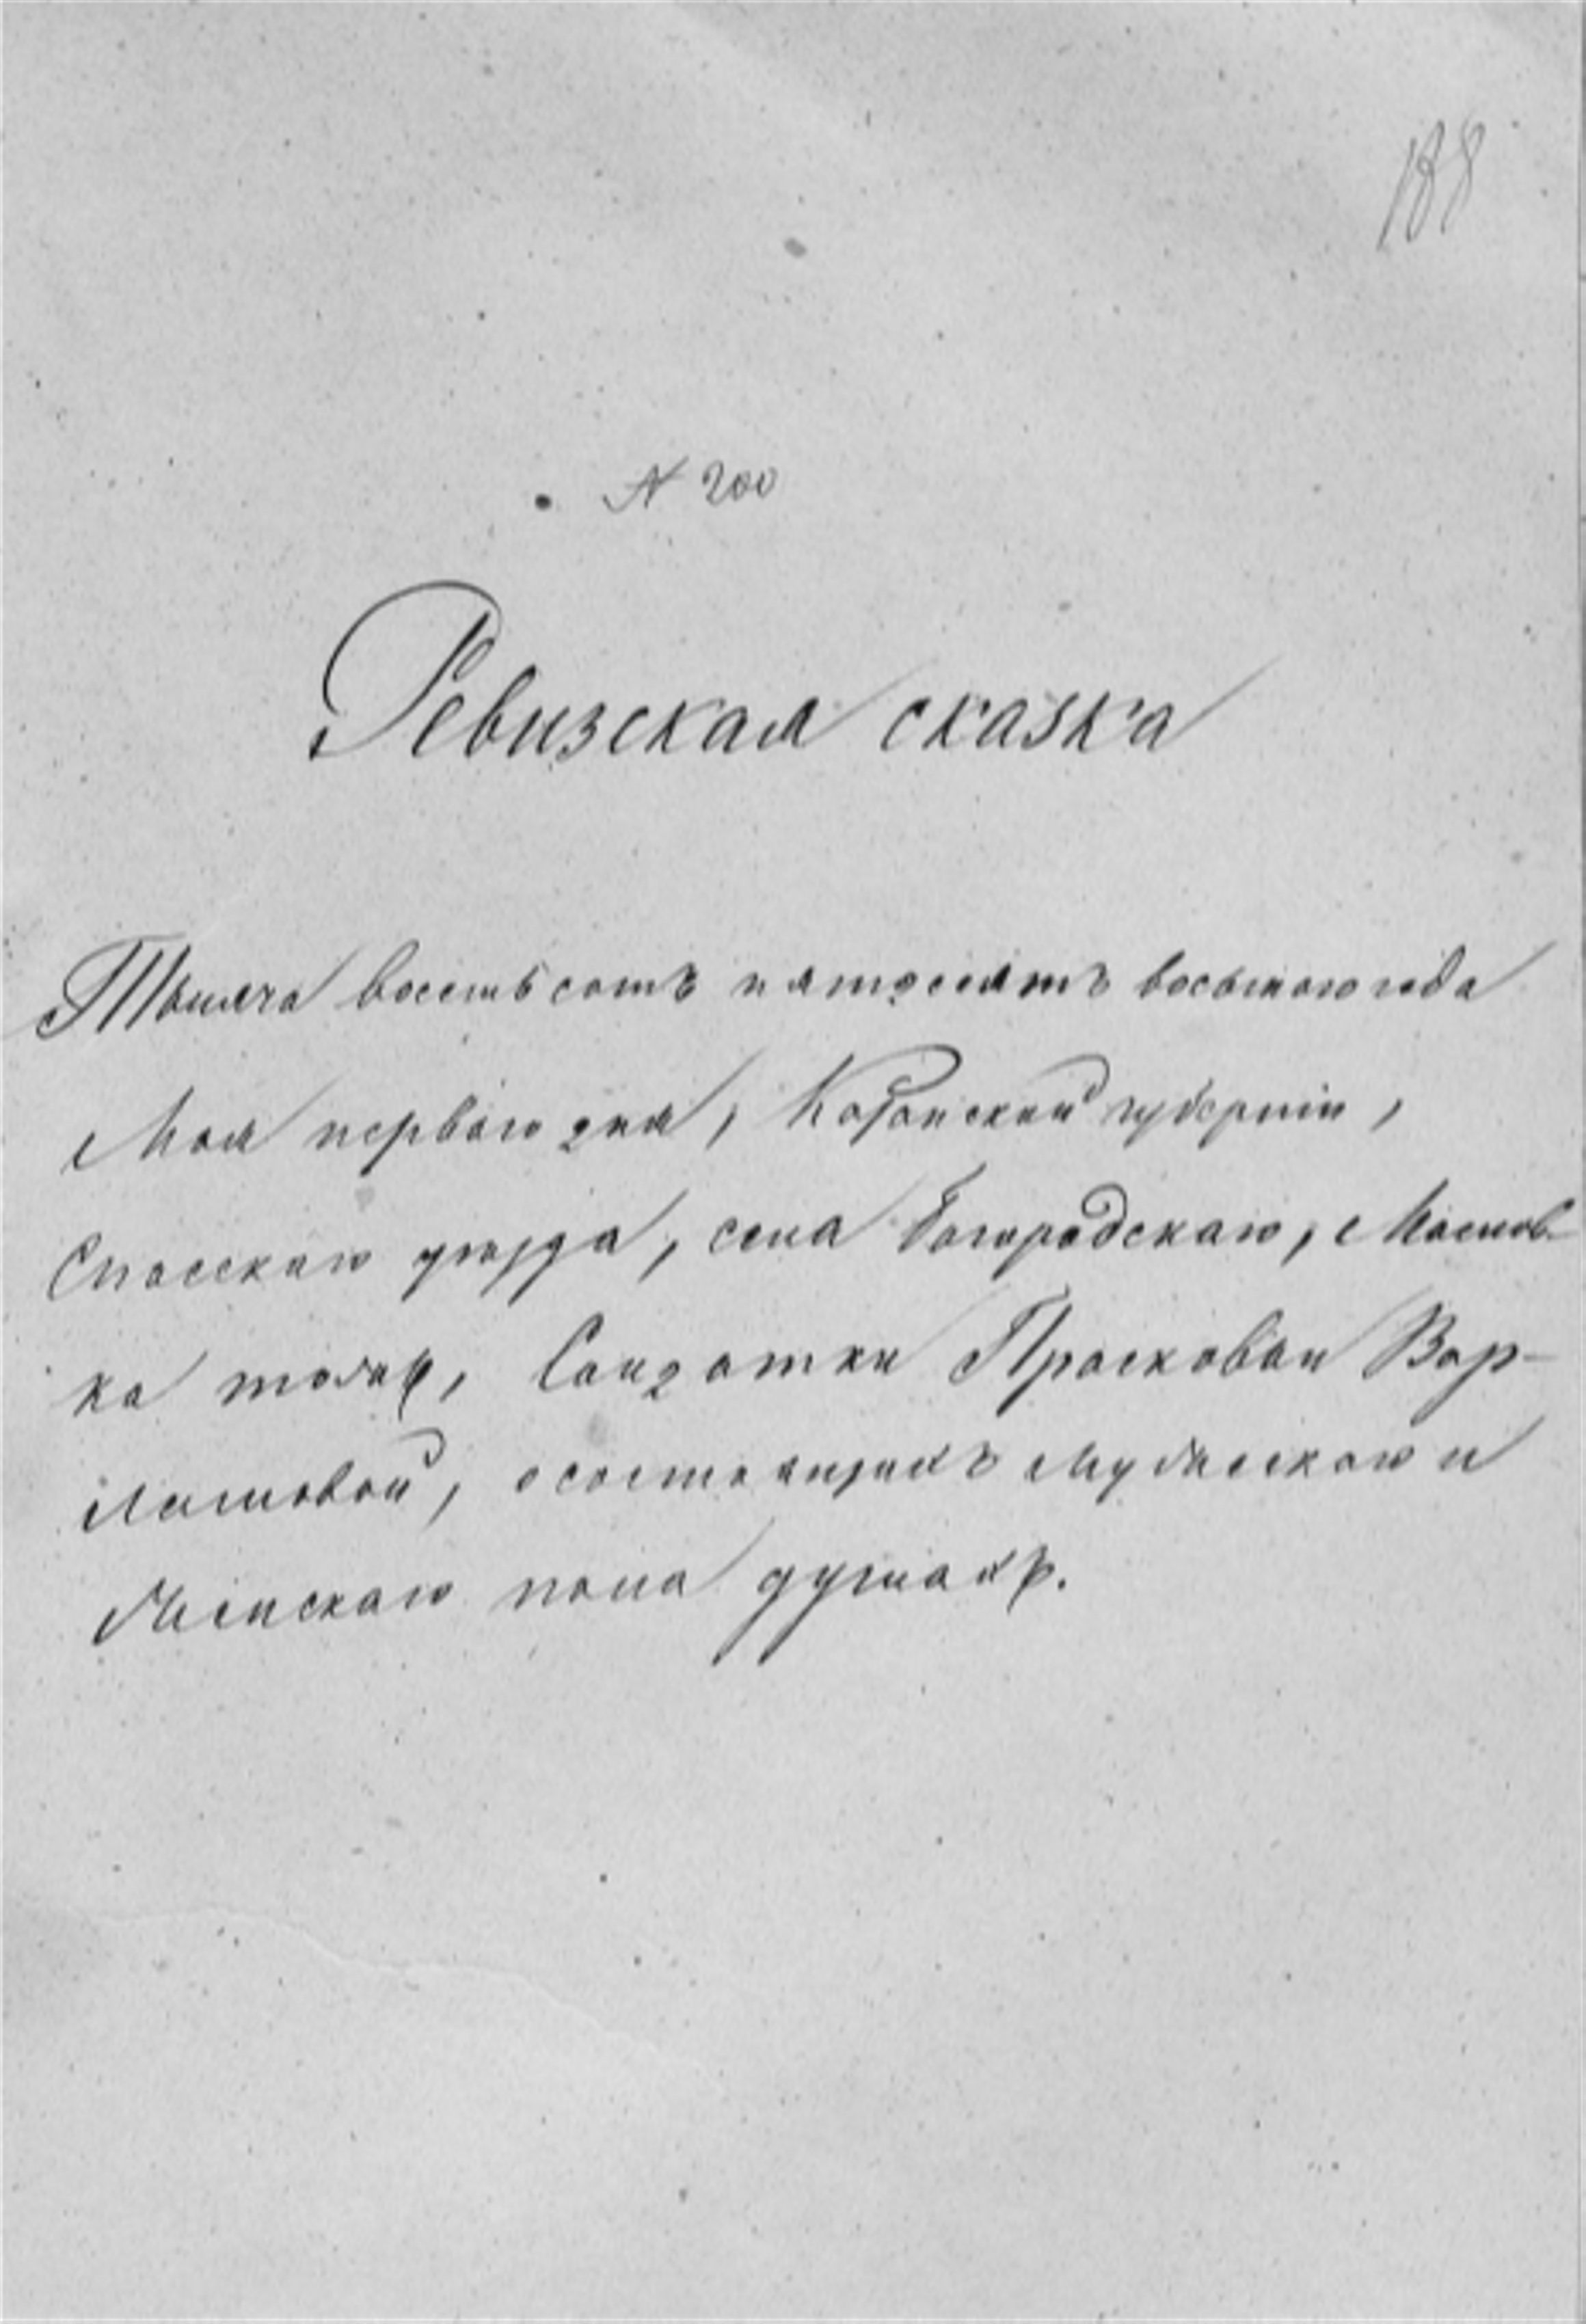 188
№ 200
Ревизская сказка
Тысяча восемьсотъ пятдесятъ восьмаго года
Мая перваго дня, Казанской губерніи,
Спасскаго уѣзда, села Богородскаго, Масловка
тожъ, Солдатки Прасковьи Вар-
ламовой, о состоящихъ мужескаго и
женскаго пола душахъ.